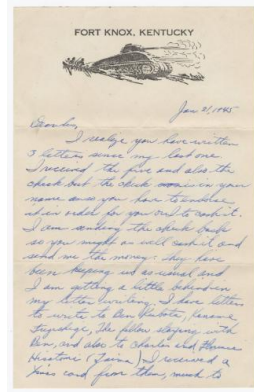 FORT KNOX, KENTUCKY
Jan 21, 1945
I realize you have written
3 letters since my last one
I received the five and also the
check but the check was in your
name so you have to endorse
in order for you and to cash it.
I am sending the check back
so you might as well cash it and
send me the money. They have
been keeping us as usual and
I am getting a little behind in
my letter writing. I have letters
to write to Ben
the fellow staying with
Ben, and also to Charles and
I received a
Xmas card from them, much to